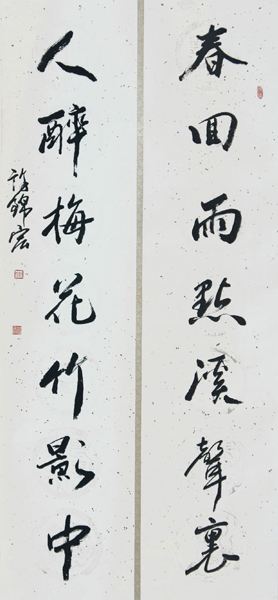 春回雨點溪聲裏
人醉梅花竹影中
許錦宏